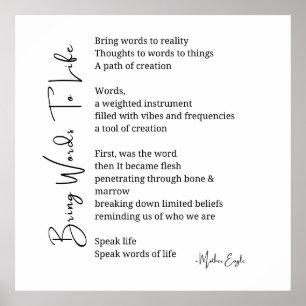 Bring Words To Life
Bring words to reality
Thoughts to words to things
A path of creation
Words,
a weighted instrument
filled with vibes and frequencies
a tool of creation
First, was the word
then It became flesh
penetrating through bone &
marrow
breaking down limited beliefs
reminding us of who we are
Speak life
Speak words of life
-Mother Eagle